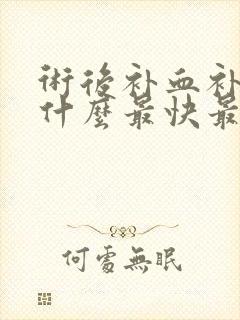 術後补血补
什麼最快最
何處無眠